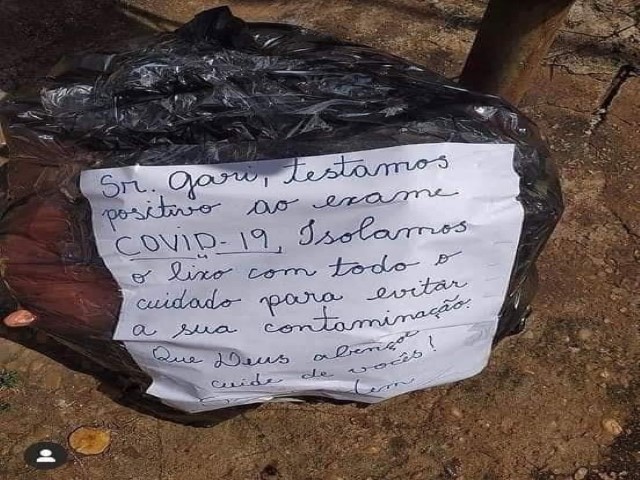 Sr. gari, testamos
positivo ao exame
COVID-19, Isolamos
o lixo com todo o
cuidado para evitar
a sua contaminação.
Que Deus abençoe
cuide de vocês!